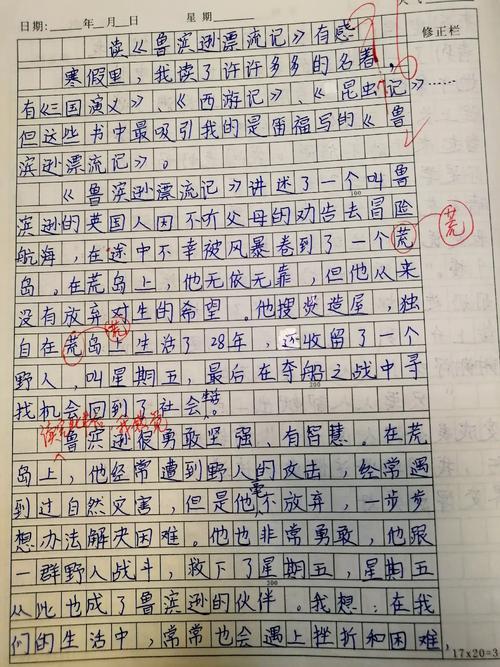 日期: 年 月 日 星期
修正栏
读《鲁滨逊漂流记》有感
寒假里,我读了许许多多的名著,
有《三国演义》、《西游记》、《昆虫记》……
但这些书中最吸引我的是雷福写的《鲁
滨逊漂流记》。
《鲁滨逊漂流记》讲述了一个叫鲁
100
滨逊的英国人因不听父母的劝告去冒险
航海,在途中不幸被风暴卷到了一个荒
荒
岛。在荒岛上,他无依无靠,但他从来
没有放弃对生的希望。他搜
造屋,独
荒
自在荒岛上生活了28年,还收留了一个
野人,叫星期五,最后在夺船之战中寻
200
找机会回到了社会
鲁滨逊很勇敢坚强、有智慧。在荒
岛上,他经常遭到野人的攻击,经常遇
到过自然灾害,但是他不放弃,一步步
想办法解决困难。他也非常勇敢,他跟
一群野人战斗,救下了星期五,星期五
300
从此也成了鲁滨逊的伙伴。我想:在我
们的生活中,常常也会遇上挫折和困难,
17×20=3